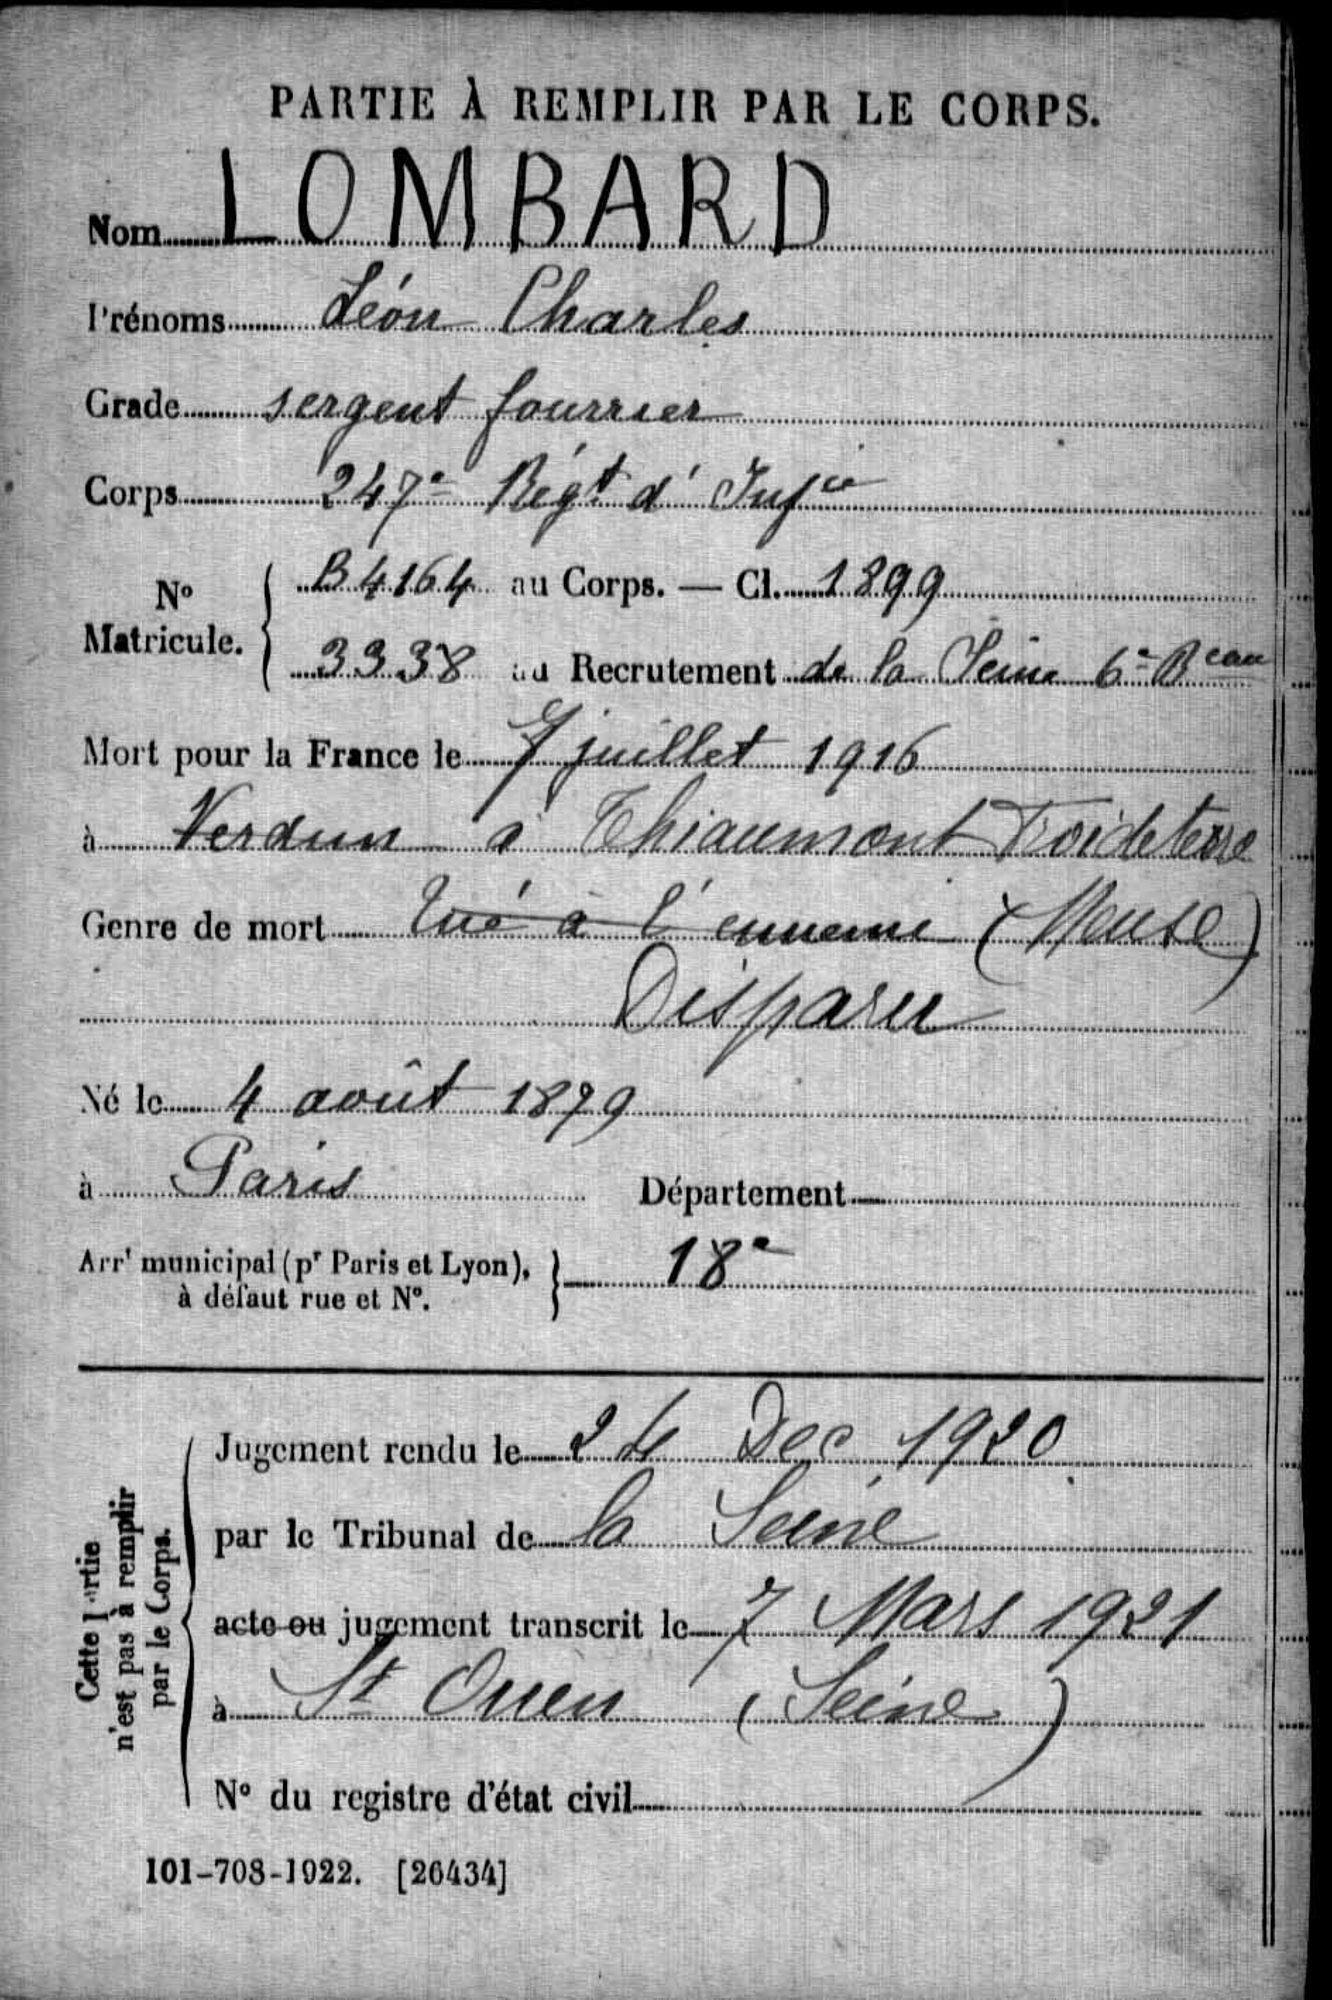 PARTIE À REMPLIR PAR LE CORPS.
Nom LOMBARD
Prénoms Léon Charles
Grade sergent fourrier
Corps 247e Régt d'Infie
No Matricule. B4164 au Corps. — Cl. 1899
3338 au Recrutement de la Seine 6e Beau
Mort pour la France le 7 juillet 1916
à Verdun à Thiaumont Froideterre
Genre de mort tué à l'ennemi (Meuse)
Disparu
Né le 4 août 1879
à Paris Département
Arrt municipal (pr Paris et Lyon), 18e
à défaut rue et No.
Cette partie
n'est pas à remplir
par le Corps.
Jugement rendu le 24 Dec 1920
par le Tribunal de la Seine
acte ou jugement transcrit le 7 Mars 1921
à St Ouen (Seine)
No du registre d'état civil
101-708-1922. [26434]